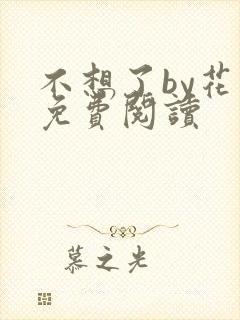 不想了by花
免費閱讀
慕之光